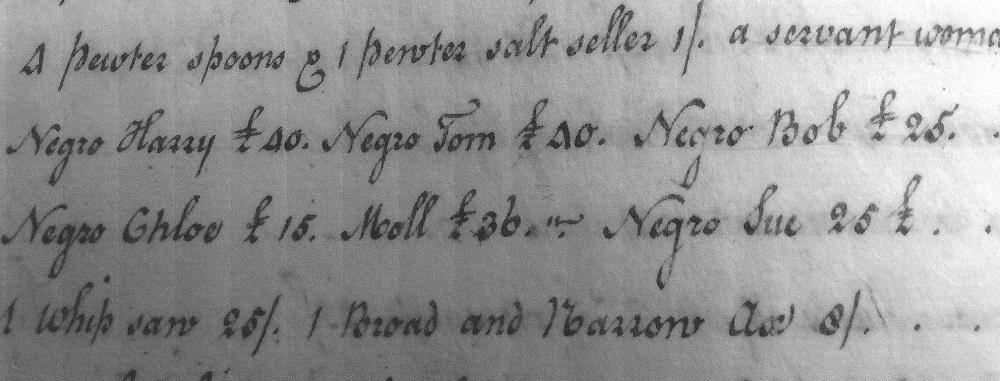 4 pewter spoons & 1 pewter salt seller 1/. a servant woma
Negro Harry £40. Negro Tom £40. Negro Bob £25.
Negro Chloe £15. Moll £36. Negro Sue 25£.
1 whip saw 25/. 1 Broad and Narrow Ax 8/.